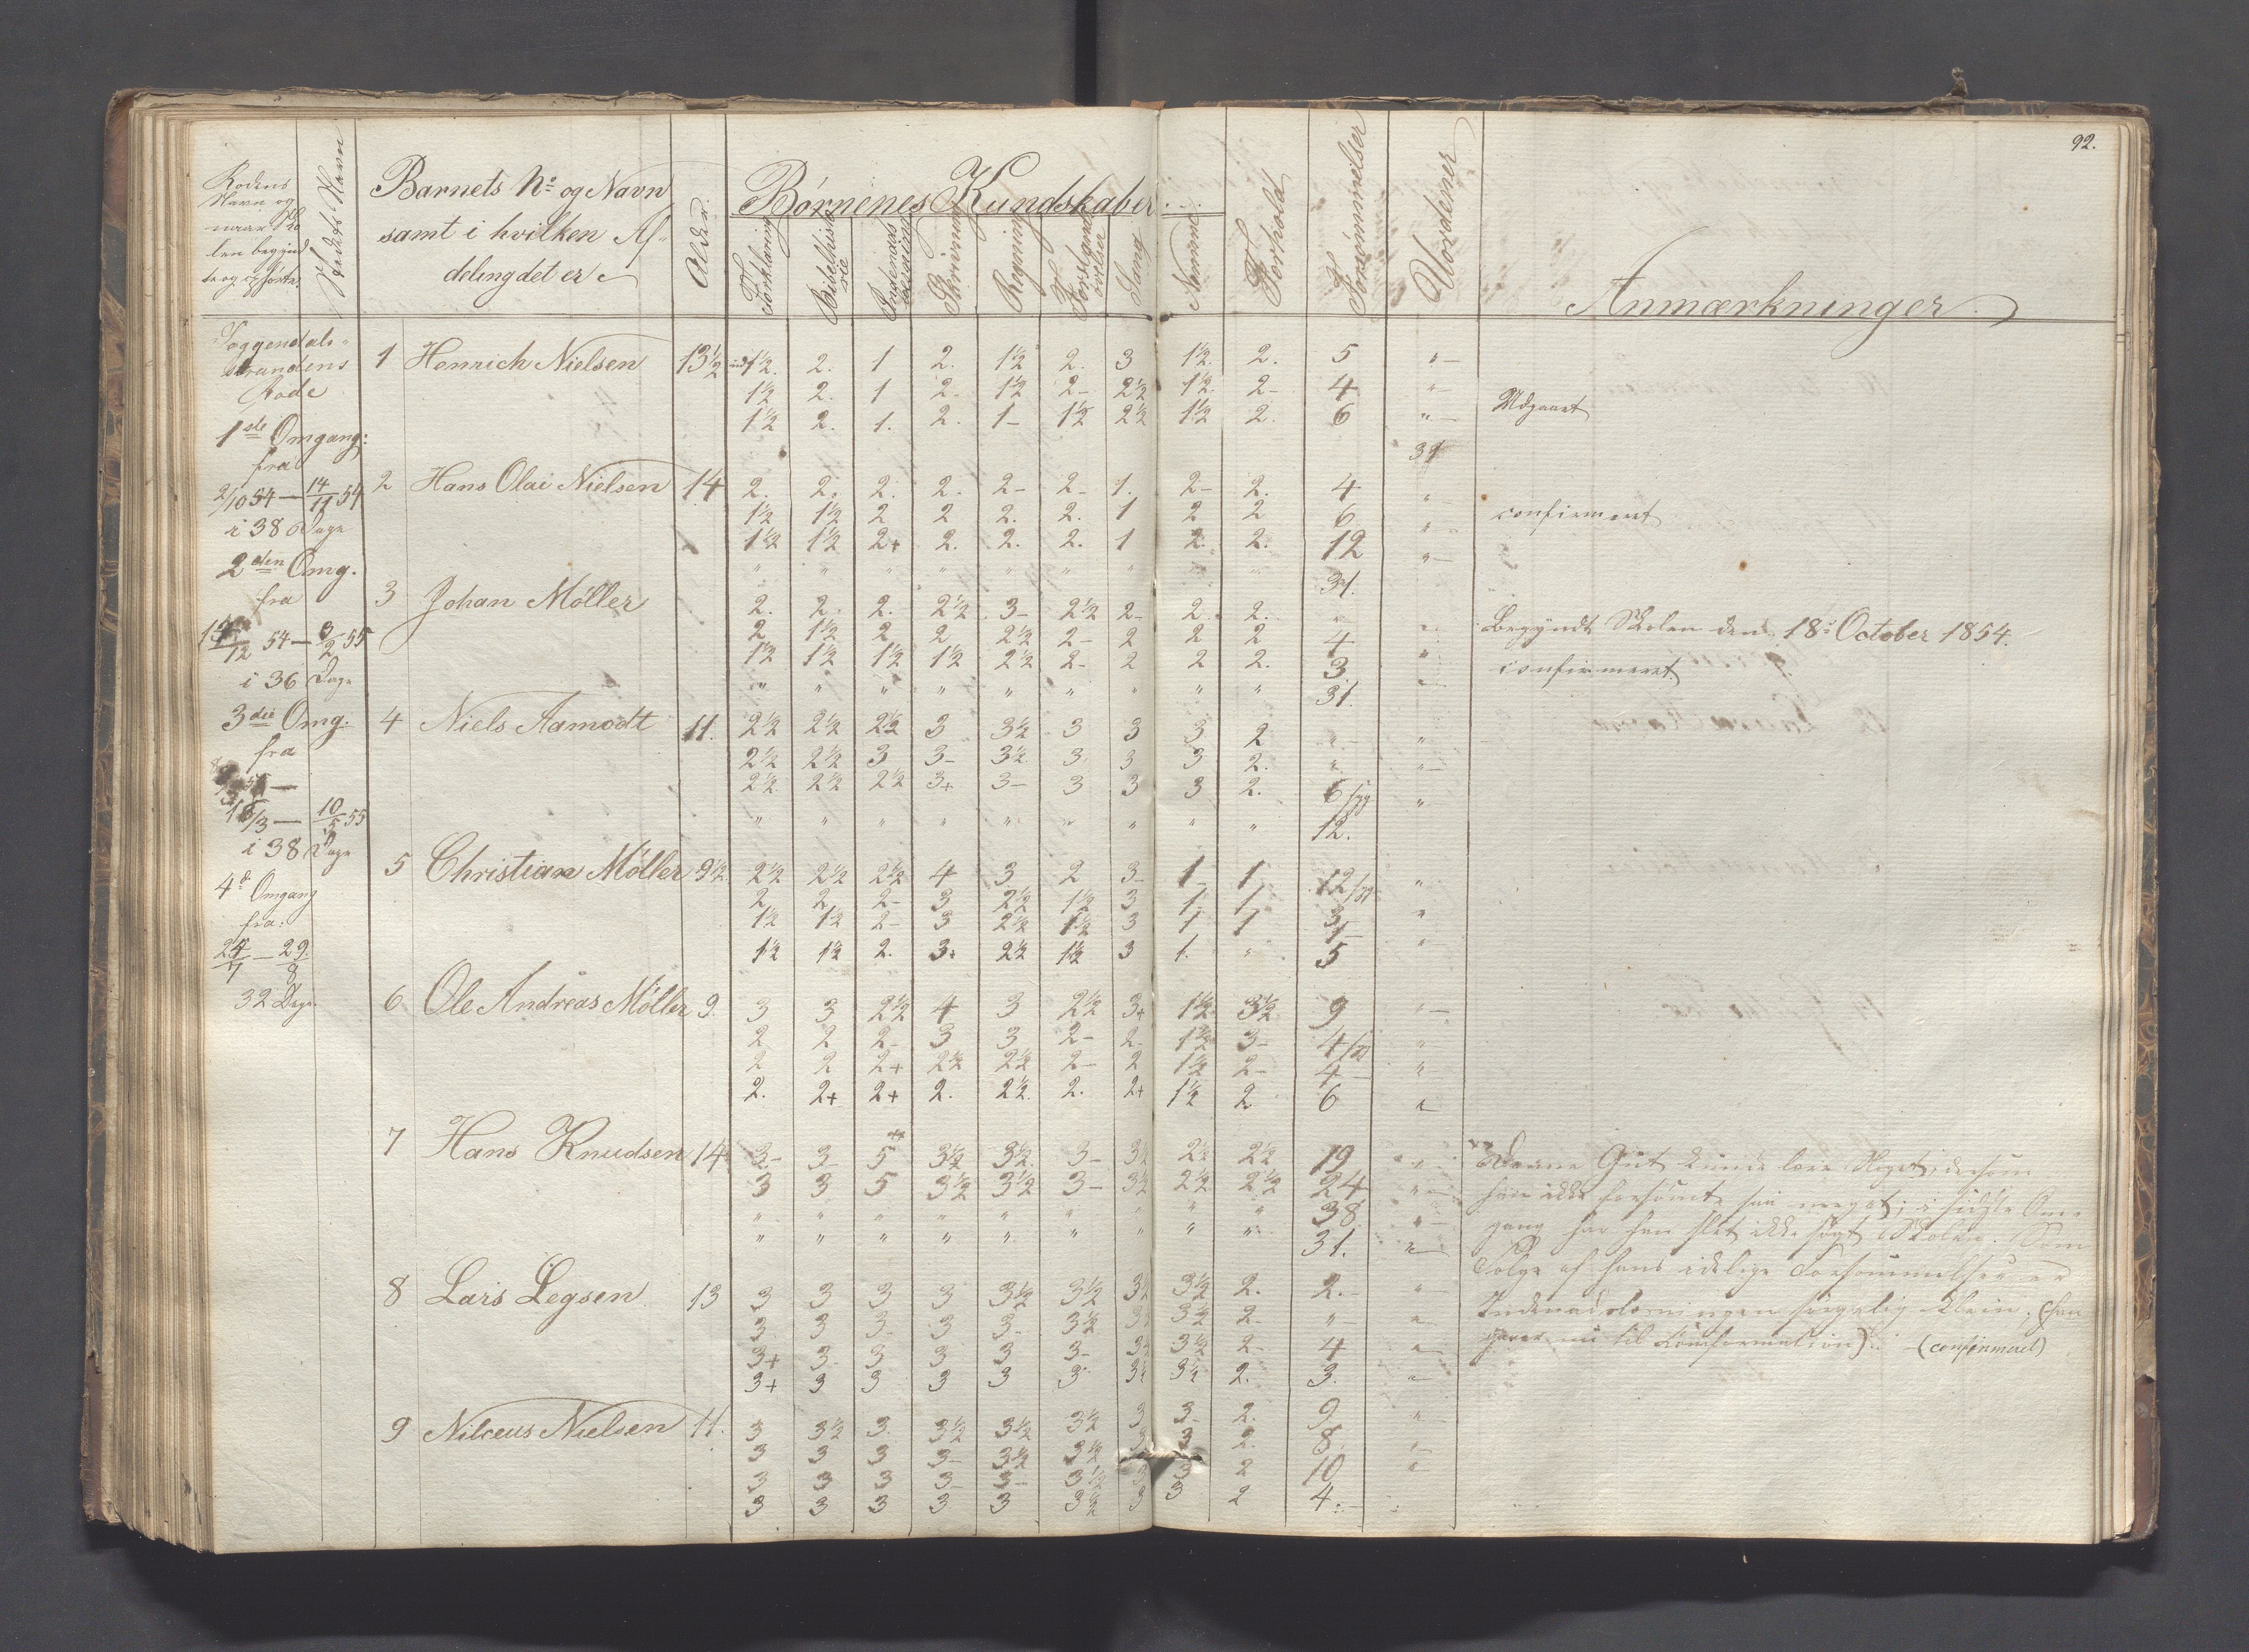 92.
Rodens
Navn og
naar Sko
len begynd
te og ophørte.
Stedets Navn
Barnets No og Navn
samt i hvilken Af-
deling det er
Alder.
Børnenes Kundskaber
Forklaring
Bibelhisto
rie
Indenads
læsning
Skrivning
Regning
Forstands
øvelser
Sang
Nemme
Forhold
Forsømmelser
Uordener
Anmærkninger
Toggendals-
strandens
Rode
1ste Omgang:
fra
2/10 54 — 14/11 54
i 38 Dage
2den Omg.
fra
12 54 — 3/2 55
i 36 Dage
3die Omg.
fra
/3 — 10/5 55
i 38 Dage
4d Omgang
fra:
24/7 — 29/8
32 Dage
1 Henrich Nielsen 13½ 1½. 2. 1 2. 1½ 2. 3 1½. 2. 5 "
1½ 2. 1 2- 1½ 2- 2½ 1½. 2- 4 "
1½ 2. 1. 2. 1- 1½ 2½ 1½ 2. 6 " Udgaaet
31
2 Hans Olai Nielsen 14 2. 2. 2. 2. 2- 2- 1. 2- 2. 4 "
1½ 1½ 2 2 2. 2. 1 2 2 6 " confirmeret
1½ 1½ 2+ 2. 2. 2. 1 2. 2. 12 "
" " " " " " " " " 31.
3 Johan Møller 2. 2. 2. 2½ 3- 2½ 2- 2. 2. " " Begyndt Skolen den 18de October 1854.
2 1½ 2 2 2½ 2- 2 2 2 4 "
1½ 1½ 1½ 1½ 2½ 2- 2 2 2. 3 " confirmeret
" " " " " " " " " 31.
4 Niels Aamodt 11. 2½ 2½ 2½ 3 3½ 3 3 3 2 " "
2½ 2½ 3 3- 3½ 3 3 3 2. " "
2½ 2½ 2½ 3+ 3- 3 3 3 2. 6/syg "
" " " " " " " " " 12.
5 Christian Møller 9½. 2½ 2½ 2½ 4 3 2 3- 1- 1 12/ "
2 2 2- 3 2½ 1½ 3 1. 1 3 "
1½ 1½ 2- 3 2½ 1½ 3 1 1 1- "
1½ 1½ 2. 3+ 2½ 1½ 3 1. " 5
6 Ole Andreas Møller 9. 3 3 2½ 4 3 2½ 3+ 1½ 3½ 9 "
2 2 2- 3 3 2- 2- 1½ 3- 4/ "
2 2 2+ 2½ 2½ 2- 2 1½ 2- 4- "
2. 2+ 2+ 2. 2½. 2. 2+ 1½ 2 6 "
7 Hans Knudsen 14 3- 3- 5 3½ 3½. 3- 3½ 2½ 2½ 19 " Denne Gut kunde lære Noget, dersom
3 3 5 3½ 3½ 3- 3½ 2½ 2½ 24 " han ikke forsømt saa meget; i sidste Om-
" " " " " " " " " 38 " gang har han slet ikke søgt Skolen. Som
" " " " " " " " " 31. " Følge af hans idelige Forsømmelser er
8 Lars Legsen 13 3 3 3 3 3½ 3½ 3½ 3½ 2. 2.- " Indenadslæsningen sørgelig klein; (han
3 3 3- 3 3- 3½ 3½ 3½ 2- "- " gaar nu til Konfirmation). - (confirmeret)
3+ 3- 3 3 3 3- 3½ 3½ 2- 4 "
3+ 3 3 3 3 3 3½ 3½ 2. 3. "
9 Nilceus Nielsen 11. 3 3½ 3. 3½ 3½ 3½ 3 3- 2. 9 "
3 3 3 3- 3½ 3½ 3 3 2. 8. "
3 3 3 3- 3- 3½ 3 3 2 10 "
3 3 3 3 3 3½ 3 3 2 4.-